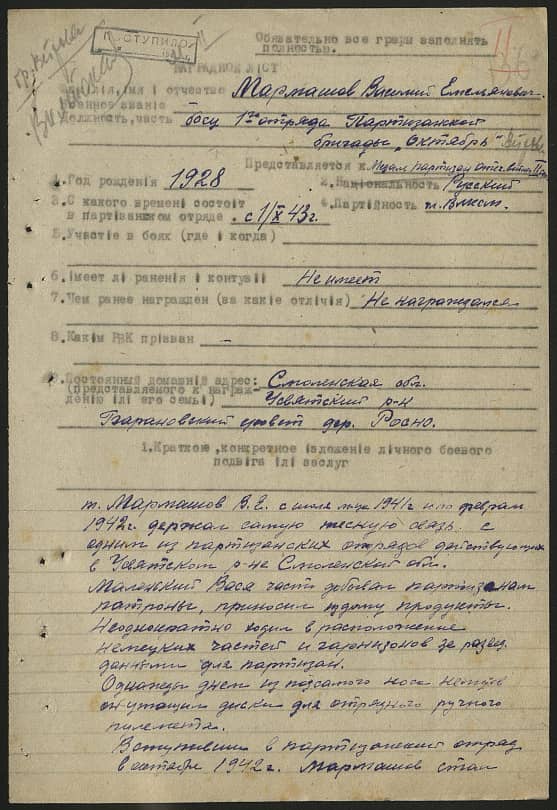 Обязательно все графы заполнять
полностью.
ПОСТУПИЛО
НАГРАДНОЙ ЛІСТ
імя і отчество Мармашов Василий Емельянович
военное звание
Должность, часть бойцу 1го отряда Партизанской
бригады „Октябрь"
Представляется к Медали партизан отеч. войны II ст.
1. Год рожденія 1928
2. Національность Русский
3. С какого времені состоіт
в партізанском отряде . с 1/X 43 г.
4. Партійность чл. ВЛКСМ.
5. Участіе в боях (где і когда)
6. імеет лі раненія і контузіі Не имеет
7. Чем ранее награжден (за какіе отлічія) Не награждался
8. Какім РВК прізван –
9. Постоянный домашній адрес: Смоленская обл.
(представляемого к награж-
денію ілі его семьі) Усвятский р-н
Барановский с/совет дер. Росно.
1. Краткое, конкретное ізложеніе лічного боевого
подвіга ілі заслуг
т. Мармашов В.Е. с июля м-ца 1941 г. по февраль
1942 г. держал самую тесную связь с
одним из партизанских отрядов действующих
в Усвятском р-не Смоленской обл.
Маленький Вася часто добывал партизанам
патроны, приносил продукты.
Неоднократно ходил в расположение
немецких частей и гарнизонов за развед.
данными для партизан.
Однажды днем из под самого носа немцев
диски для отрядного ручного
пулемета.
Вступивши в партизанский отряд
в октябре 1942 г. Мармашов стал